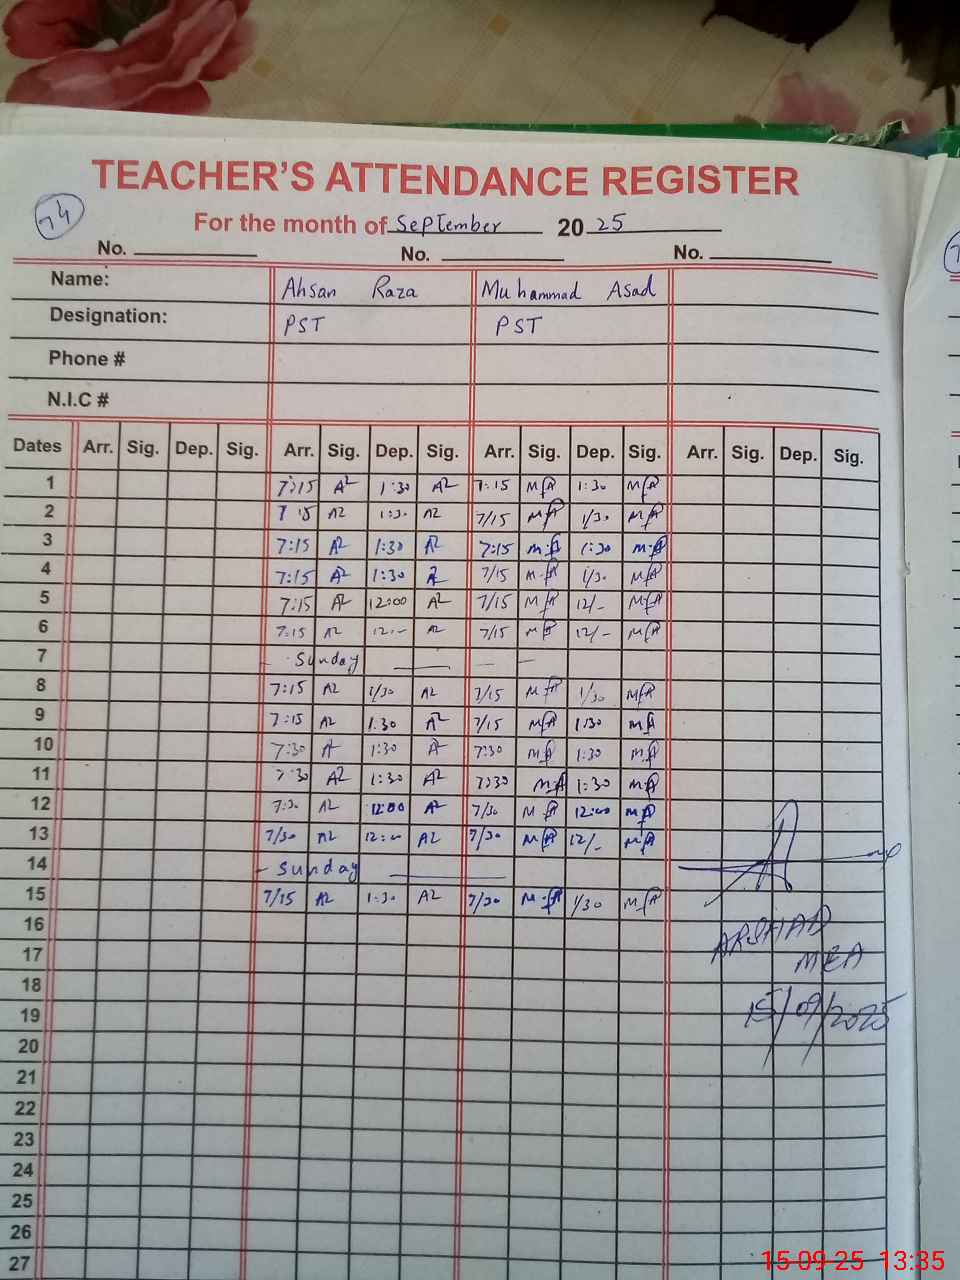 TEACHER'S ATTENDANCE REGISTER
74
For the month of September 2025
No. No. No.
Name: Ahsan Raza Muhammad Asad
Designation: PST PST
Phone #
N.I.C #
Dates Arr. Sig. Dep. Sig. Arr. Sig. Dep. Sig. Arr. Sig. Dep. Sig. Arr. Sig. Dep. Sig.
1 7:15 AR 1:30 AR 7:15 MA 1:30 MA
2 7 15 AR 1:30 AR 7/15 MA 1/30 MA
3 7:15 AR 1:30 AR 7:15 M.A 1:30 M.A
4 7:15 AR 1:30 AR 7/15 M.A 1/30 MA
5 7:15 AR 12:00 AR 7/15 MA 12/- MA
6 7:15 AR 12:- AR 7/15 MA 12/- MA
7 - Sunday
8 7:15 AR 1/30 AR 7/15 MA 1/30 MA
9 7:15 AR 1:30 AR 7/15 MA 1:30 MA
10 7:30 AR 1:30 AR 7:30 MA 1:30 MA
11 7:30 AR 1:30 AR 7:30 MA 1:30 MA
12 7:30 AR 12:00 AR 7/30 MA 12:00 MA
13 7/30 AR 12:00 AR 7/30 MA 12/- MA
14 - Sunday
15 7/15 AR 1:30 AR 7/30 M.A 1/30 MA
16
ARSHAD
17
MEA
18
19
15/09/2025
20
21
22
23
24
25
26
27
15 09 25 13:35